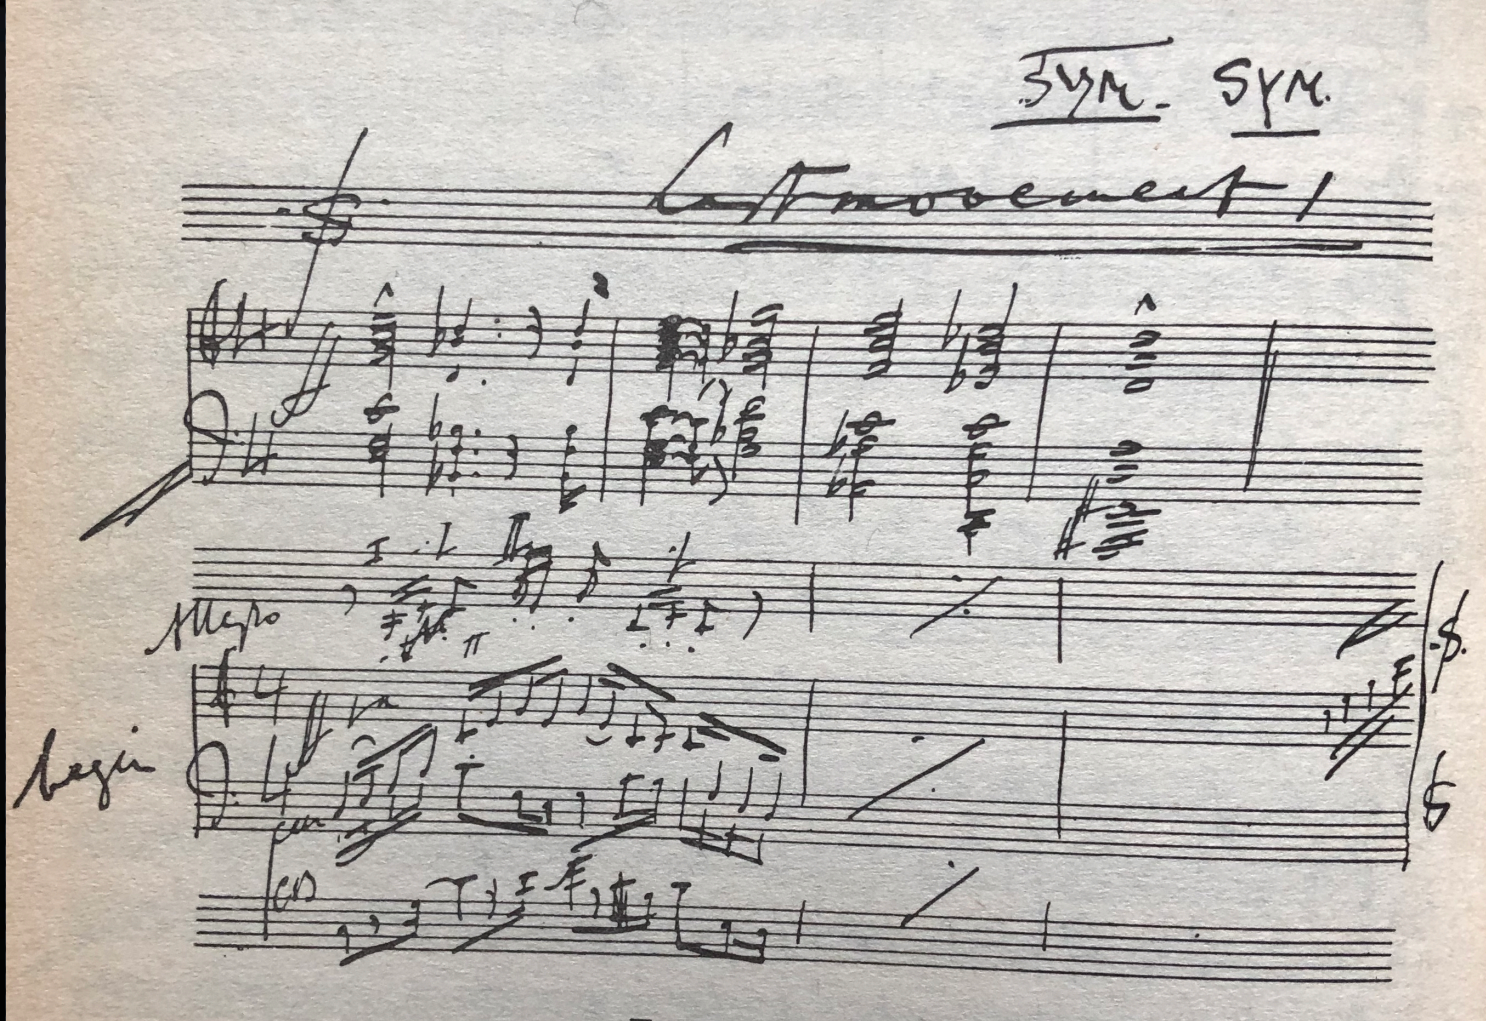 SYM. SYM.
Last movement
Allegro
begin